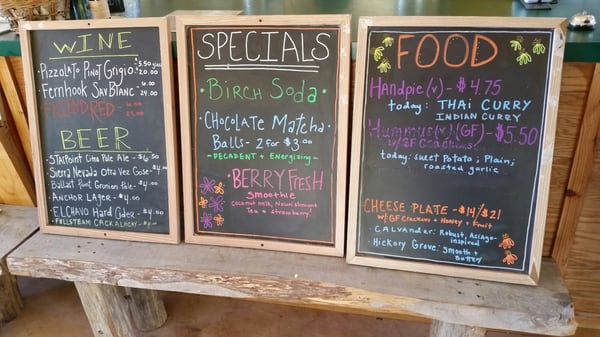 WINE
PIZZOLATO PINOT GRIGIO $5.50
$20.00
FERNHOOK SAV BLANC
24.00
BEER
STARPOINT Citra Pale Ale - $6.50
Sierra Nevada Otra Vez Gose - $4.00
Ballast Point Grunion Pale - $4.00
ANCHOR LAGER - $4.00
EL CHAVO Hard Cider - $4.00
FULLSTEAM CACKALACKY - $4.00
SPECIALS
BIRCH SODA
CHOCOLATE MATCHA
Balls - 2 for $3.00
- DECADENT + Energizing -
BERRY FRESH
smoothie
coconut milk, Nourishment
Tea + strawberry!
FOOD
HANDPIE (v) - $4.75
today: THAI CURRY
INDIAN CURRY
Hummus (v) (GF) - $5.50
w/ GF crackers
today: Sweet Potato, Plain,
roasted garlic
CHEESE PLATE - $14/$21
w/ GF crackers + Honey + Fruit
CALVANDER: Robust, Asiago-
inspired
Hickory Grove: Smooth +
Buttery